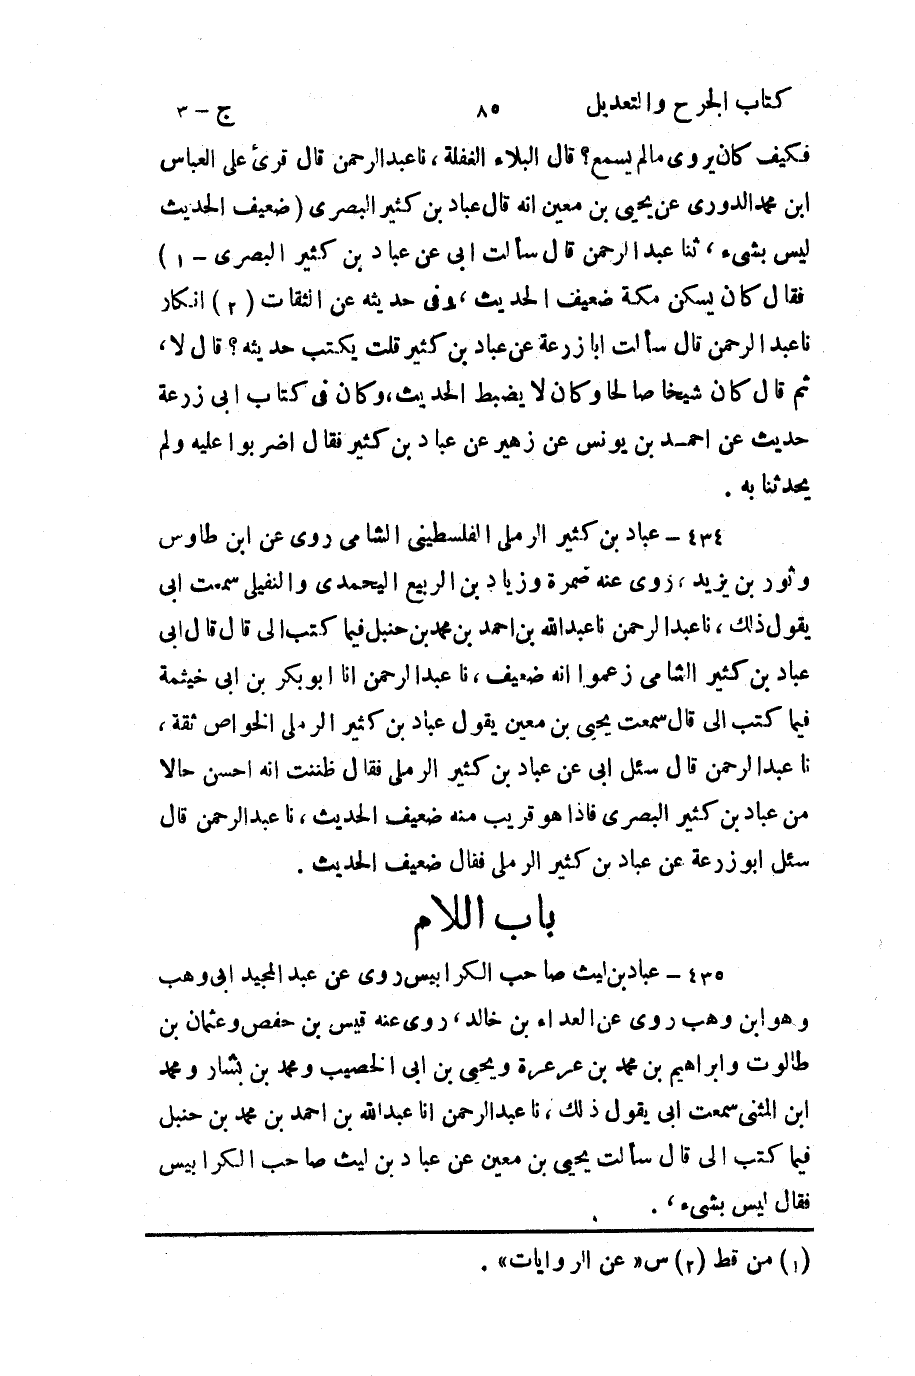 كتاب الجرح والتعديل ٨٥ ج – ٣
فكيف كان يروى مالم يسمع؟ قال البلاء الغفلة، نا عبد الرحمن قال قرئ على العباس
ابن محمد الدورى عن يحيى بن معين انه قال عباد بن كثير البصرى (ضعيف الحديث
ليس بشىء، ثنا عبد الرحمن قال سألت ابى عن عباد بن كثير البصرى – ١)
فقال كان يسكن مكة ضعيف الحديث، وفى حديثه عن الثقات (٢) انكار
نا عبد الرحمن قال سألت ابا زرعة عن عباد بن كثير قلت يكتب حديثه؟ قال لا،
ثم قال كان شيخا صالحا وكان لا يضبط الحديث، وكان فى كتاب ابى زرعة
حديث عن احمد بن يونس عن زهير عن عباد بن كثير فقال اضربوا عليه ولم
يحدثنا به .
٤٣٤ – عباد بن كثير الرملى الفلسطينى الشامى روى عن ابن طاوس
وثور بن يزيد، روى عنه ضمرة وزياد بن الربيع اليحمدى والنفيلى سمعت ابى
يقول ذلك، نا عبد الرحمن نا عبد الله بن احمد بن محمد بن حنبل فيما كتب الى قال قال ابى
عباد بن كثير الشامى زعموا انه ضعيف، نا عبد الرحمن انا ابو بكر بن ابى خيثمة
فيما كتب الى قال سمعت يحيى بن معين يقول عباد بن كثير الرملى الخواص ثقة،
نا عبد الرحمن قال سئل ابى عن عباد بن كثير الرملى فقال ظننت انه احسن حالا
من عباد بن كثير البصرى فاذا هو قريب منه ضعيف الحديث، نا عبد الرحمن قال
سئل ابو زرعة عن عباد بن كثير الرملى فقال ضعيف الحديث .
باب اللام
٤٣٥ – عباد بن ليث صاحب الكرابيس روى عن عبد المجيد ابى وهب
وهو ابن وهب روى عن العداء بن خالد، روى عنه قيس بن حفص وعثمان بن
طالوت وابراهيم بن محمد بن عرعرة ويحيى بن ابى الخصيب ومحمد بن بشار ومحمد
ابن المثنى سمعت ابى يقول ذلك، نا عبد الرحمن انا عبد الله بن احمد بن محمد بن حنبل
فيما كتب الى قال سألت يحيى بن معين عن عباد بن ليث صاحب الكرابيس
فقال ليس بشىء، .
(١) من قط (٢) س «عن الروايات» .